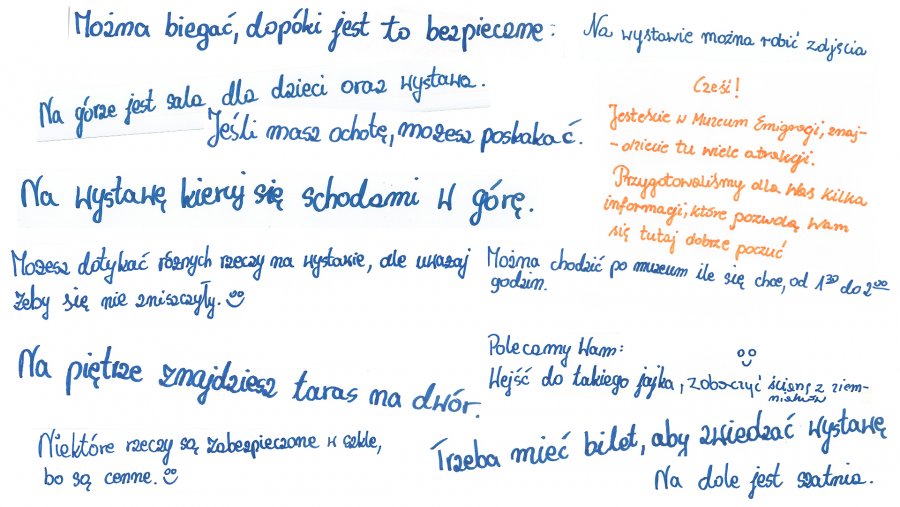 Można biegać, dopóki jest to bezpieczne:
Na wystawie można robić zdjścia
Na górze jest sala dla dzieci oraz wystawa.
Jeśli masz ochotę, możesz poskakać.
Cześć!
Jesteście w Muzeum Emigracji, znaj-
-dziecie tu wiele atrakcji.
Przygotowaliśmy dla Was kilka
informacji, które pozwolą Wam
się tutaj dobrze poczuć
Na wystawę kieruj się schodami w górę.
Możesz dotykać róznych rzeczy na wystawie, ale uważaj
żeby się nie zniszczyły.
Można chodzić po muzeum ile się chce, od 1³⁰ do 2⁰⁰
godzin.
Na piętrze znajdziesz taras na dwór.
Polecamy Wam:
Wejść do takiego jajka, zobaczyć ścianę z ziem-
niaków
Niektóre rzeczy są zabezpieczone w szkle,
bo są cenne.
Trzeba mieć bilet, aby zwiedzać wystawę
Na dole jest szatnia.